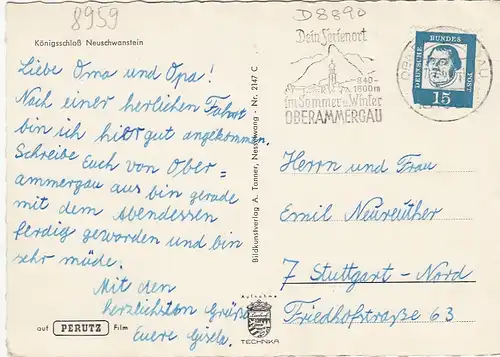 8959
D8890
Königsschloß Neuschwanstein
Liebe Oma und Opa!
Nach einer herlichen Fahrt
bin ich hier gut angekommen.
Schreibe Euch von Ober=
ammergau aus bin gerade
mit dem Abendessen
ferdig geworden und bin
sehr müde.
Mit den
herzlichsten Grüße
Euere Gisela.
auf PERUTZ Film
Bildkunstverlag A. Tanner, Nesselwang - Nr. 2147 C
Aufnahme
TECHNIKA
Dein Ferienort
840-
1600m
im Sommer u. Winter
OBERAMMERGAU
DEUTSCHE BUNDESPOST
15
Herrn und Frau
Emil Neureuther
7 Stuttgart - Nord
Friedhofstraße 63